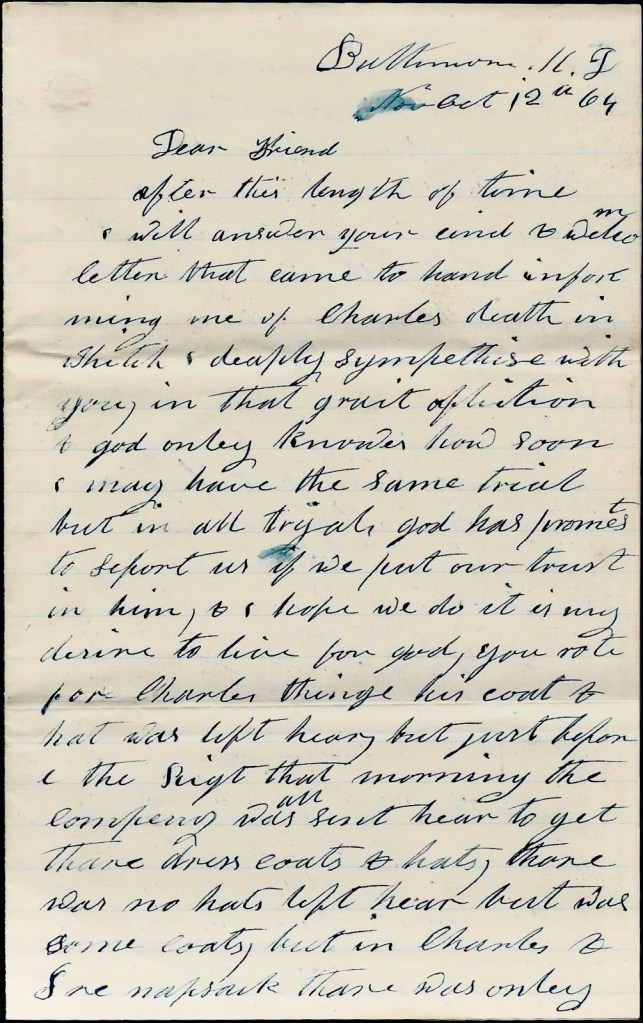 Baltimore. K. J
Oct 12th 64
Dear Friend
after this length of time
i will answer your cind & welcom
letter that came to hand infor
ming me of Charles death in
Which i deaply sympethise with
you, in that grait afliction
& god onley knowes how soon
i may have the same trial
but in all tryals god has promest
to seport us if we put our trust
in him, & i hope we do it is my
desire to live for god, you rote
for Charles things his coat &
hat was left hear, but just befor
e the that morning the
compeny was all sent hear to get
thare dress coats & hats, thare
was no hats left hear but was
some coats, but in Charles &
napsack thare was onley